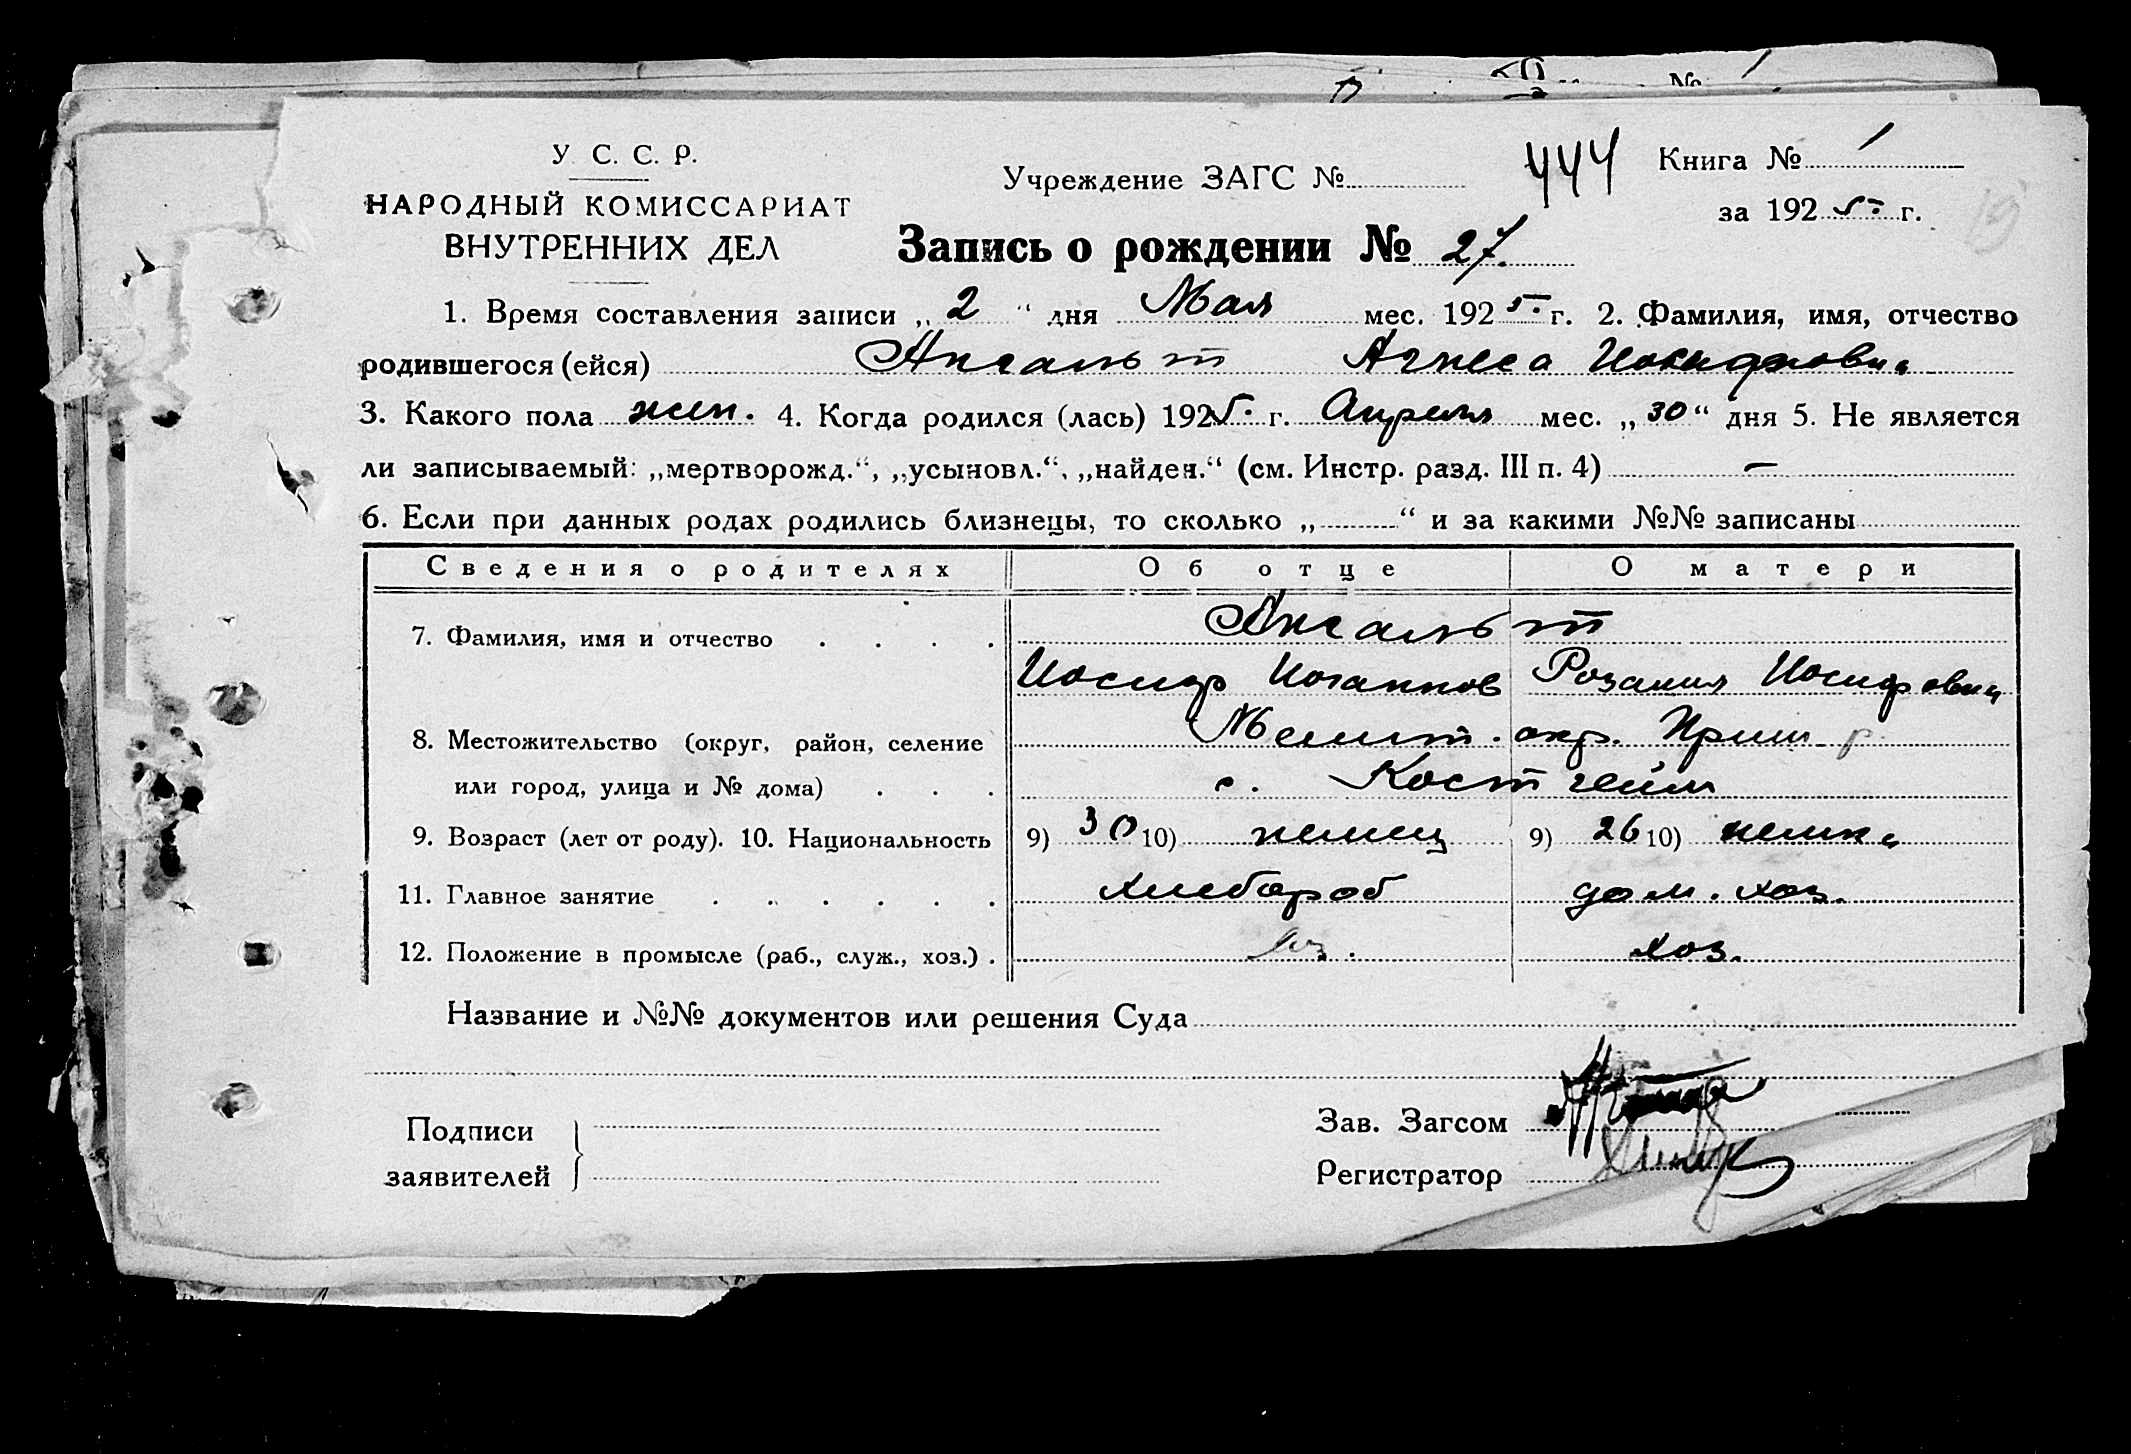 № 1
У. С. С. Р.
НАРОДНЫЙ КОМИССАРИАТ
ВНУТРЕННИХ ДЕЛ
Учреждение ЗАГС № 444 Книга № 1
за 1925 г.
Запись о рождении № 27.
1. Время составления записи „ 2 “ дня Мая мес. 1925 г. 2. Фамилия, имя, отчество
родившегося (ейся) Ангальт Агнеса Иосифовна
3. Какого пола жен. 4. Когда родился (лась) 1925 г. Апреля мес. „ 30 “ дня 5. Не является
ли записываемый: „мертворожд.“, „усыновл.“, „найден.“ (см. Инстр. разд. III п. 4) —
6. Если при данных родах родились близнецы, то сколько „ “ и за какими №№ записаны
Сведения о родителях Об отце О матери
7. Фамилия, имя и отчество Ангальт
Иосиф Иоганнов Розалия Иосифовна
8. Местожительство (округ, район, селение Мелит. окр. Приш. р.
или город, улица и № дома) с. Костгейм
9. Возраст (лет от роду). 10. Национальность 9) 30 10) немец 9) 26 10) немка
11. Главное занятие хлебороб дом. хоз.
12. Положение в промысле (раб., служ., хоз.) хоз. хоз.
Название и №№ документов или решения Суда
Подписи
заявителей
Зав. Загсом
Регистратор